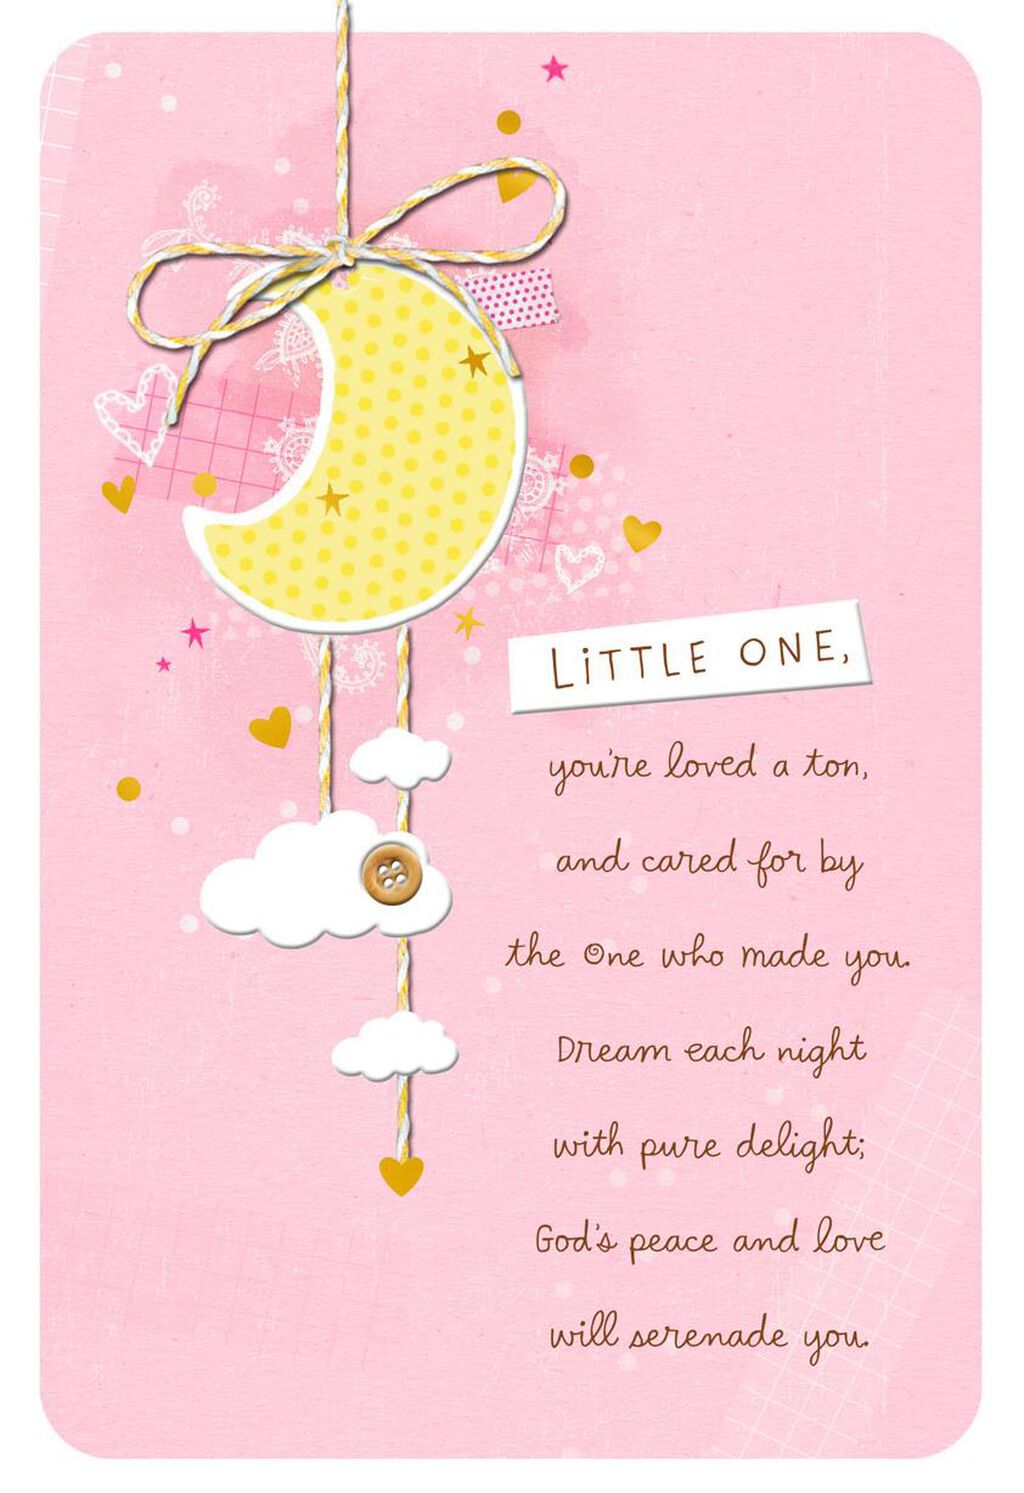 LiTTLE ONE,
you're loved a ton,
and cared for by
the One who made you.
Dream each night
with pure delight;
God's peace and love
will serenade you.